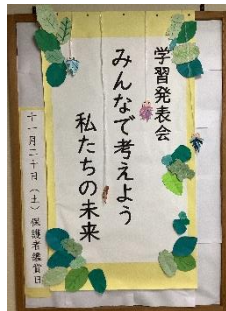 学習発表会
みんなで考えよう
私たちの未来
十一月二十日(土)保護者鑑賞日